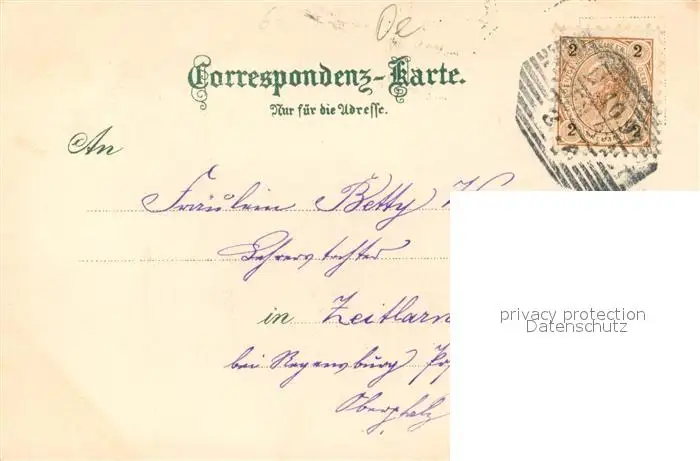 Oe
Correspondenz-Karte.
Nur für die Adresse.
2 2
2 2
An
Fräulein Betty
Lehrerstochter
in Zeitlarn
bei Regensburg
Oberpfalz
privacy protection
Datenschutz